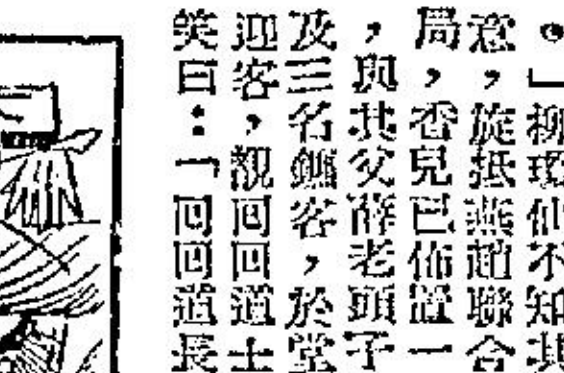 。」柳瑶仙不知其
意，旋抵燕趙聯合
局，香兒已佈置一
，與其父薛老頭子
及三名鏢客，於堂
迎客，覩回回道士
笑曰：「回回道長